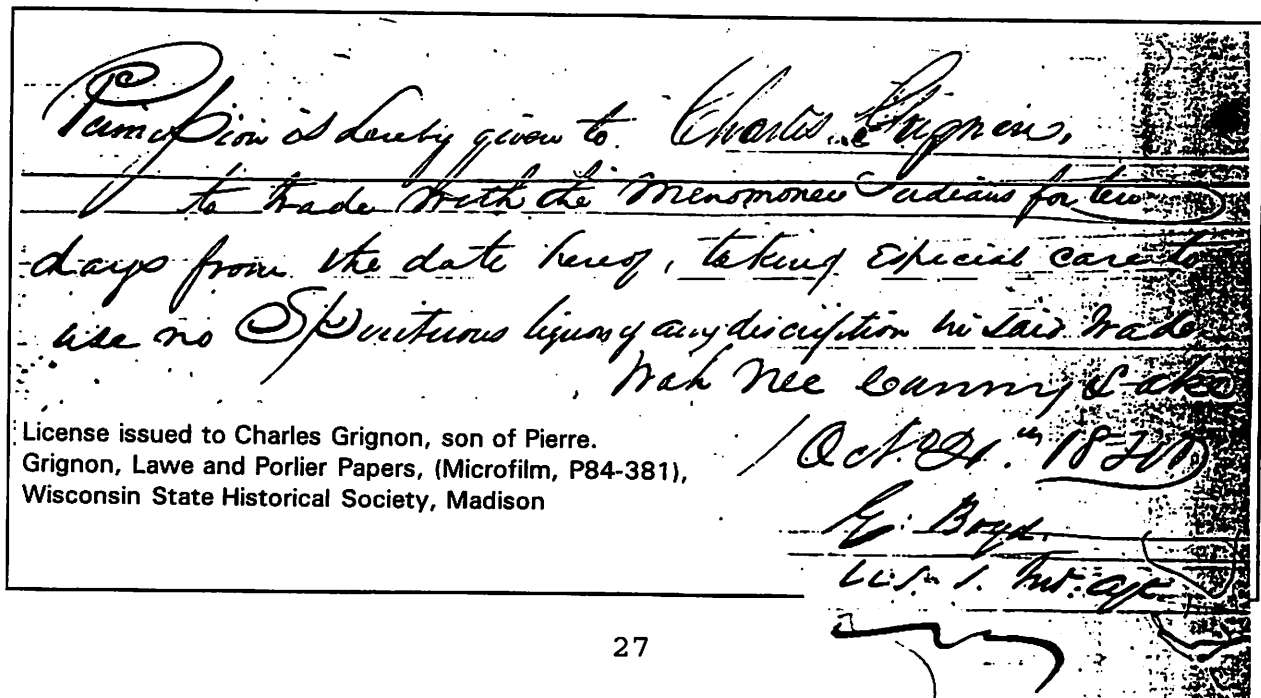 Permission is hereby given to Charles Grignon,
to trade with the Menomonee Indians for ten
days from the date hereof, taking Especial care to
use no Spirituous liquors of any discription in said trade
Wah Nee Cunny Lake
Oct. 21. 18
G. Boyd.
U.S. I. Agt.
License issued to Charles Grignon, son of Pierre.
Grignon, Lawe and Porlier Papers, (Microfilm, P84-381),
Wisconsin State Historical Society, Madison
27